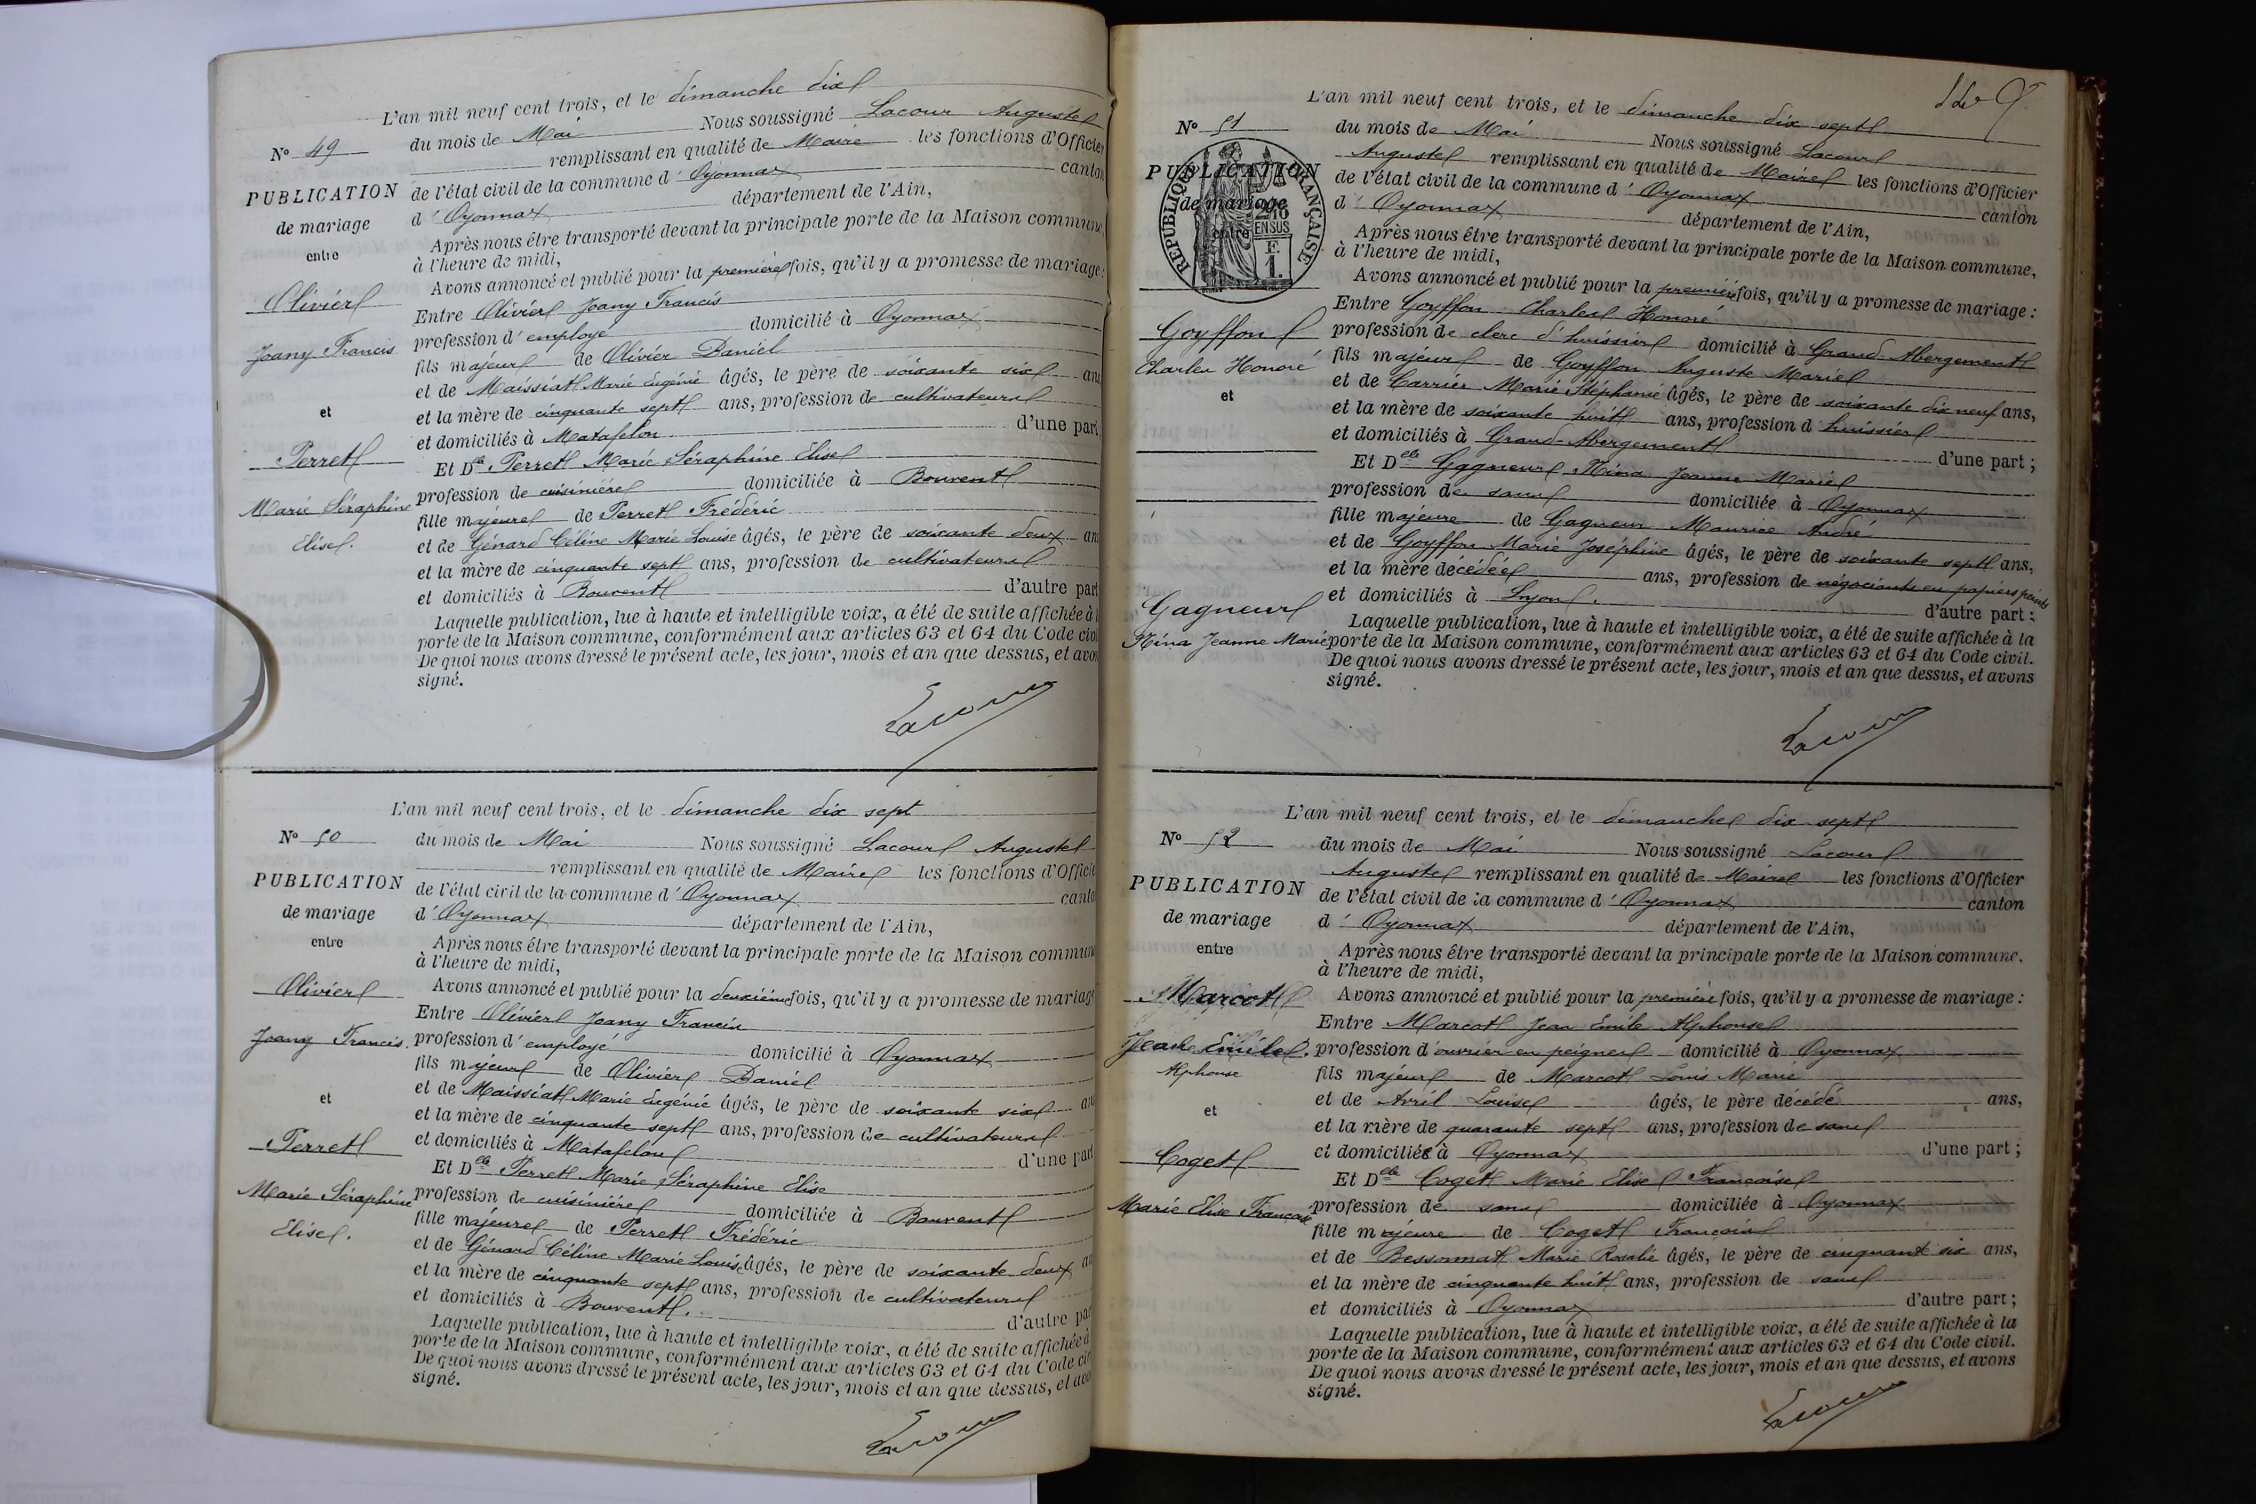 L'an mil neuf cent trois, et le dimanche dix
du mois de Mai Nous soussigné Lacour Auguste
N° 49
remplissant en qualité de Maire les fonctions d'Officier
PUBLICATION
de l'état civil de la commune d' Oyonnax canton
d' Oyonnax département de l'Ain,
de mariage
entre
Après nous être transporté devant la principale porte de la Maison commune,
à l'heure de midi,
Avons annoncé et publié pour la première fois, qu'il y a promesse de mariage :
Olivier
Joany Francis
Entre Olivier Joany Francis
profession d'employé domicilié à Oyonnax
fils majeur de Olivier Daniel
et de Maissiat Marie Eugénie âgés, le père de soixante six ans
et
et la mère de cinquante sept ans, profession de cultivateurs
et domiciliés à Matafelon d'une part
Perret
Marie Séraphine
Elise.
Et Dlle Perret Marie Séraphine Elise
profession de cuisinière domiciliée à Bouvent
fille majeure de Perret Frédéric
et de Génard Céline Marie Louise âgés, le père de soixante deux ans
et la mère de cinquante sept ans, profession de cultivateurs
et domiciliés à Bouvent d'autre part
Laquelle publication, lue à haute et intelligible voix, a été de suite affichée à
porte de la Maison commune, conformément aux articles 63 et 64 du Code civil
De quoi nous avons dressé le présent acte, les jour, mois et an que dessus, et avons
signé.
Lacour
L'an mil neuf cent trois, et le dimanche dix sept
N° 50
du mois de Mai Nous soussigné Lacour Auguste
remplissant en qualité de Maire les fonctions d'Officier
PUBLICATION
de l'état civil de la commune d' Oyonnax canton
de mariage
d' Oyonnax département de l'Ain,
entre
Après nous être transporté devant la principale porte de la Maison commune
à l'heure de midi,
Avons annoncé et publié pour la deuxième fois, qu'il y a promesse de mariage
Olivier
Joany Francis.
Entre Olivier Joany Francis
profession d'employé domicilié à Oyonnax
fils majeur de Olivier Daniel
et de Maissiat Marie Eugénie âgés, le père de soixante six ans
et
et la mère de cinquante sept ans, profession de cultivateurs
et domiciliés à Matafelon d'une part
Perret
Marie Séraphine
Elise.
Et Dlle Perret Marie Séraphine Elise
profession de cuisinière domiciliée à Bouvent
fille majeure de Perret Frédéric
et de Génard Céline Marie Louise âgés, le père de soixante deux an
et la mère de cinquante sept ans, profession de cultivateurs
et domiciliés à Bouvent. d'autre par
Laquelle publication, lue à haute et intelligible voix, a été de suite affichée à
porte de la Maison commune, conformément aux articles 63 et 64 du Code civ
De quoi nous avons dressé le présent acte, les jour, mois et an que dessus, et avo
signé.
Lacour
L'an mil neuf cent trois, et le dimanche dix sept
N° 51
du mois de Mai Nous soussigné Lacour
Auguste remplissant en qualité de Maire les fonctions d'Officier
PUBLICATION
de l'état civil de la commune d' Oyonnax canton
de mariage
d' Oyonnax département de l'Ain,
entre
RÉPUBLIQUE FRANÇAISE
2/10
EN SUS
F.
1.
Après nous être transporté devant la principale porte de la Maison commune,
à l'heure de midi,
Avons annoncé et publié pour la première fois, qu'il y a promesse de mariage :
Goyffon
Charles Honoré
Entre Goyffon Charles Honoré
profession de clerc d'huissier domicilié à Grand-Abergement
fils majeur de Goyffon Auguste Marie
et de Carrier Marie Stéphanie âgés, le père de soixante dix neuf ans,
et
et la mère de soixante huit ans, profession d'huissier
et domiciliés à Grand-Abergement d'une part ;
Et Dlle Gagneur Nina Jeanne Marie
profession de sans domiciliée à Oyonnax
fille majeure de Gagneur Maurice André
et de Goyffon Marie Joséphine âgés, le père de soixante sept ans,
et la mère decédée ans, profession de négociants en papiers peints
et domiciliés à Lyon. d'autre part ;
Gagneur
Nina Jeanne Marie
Laquelle publication, lue à haute et intelligible voix, a été de suite affichée à la
porte de la Maison commune, conformément aux articles 63 et 64 du Code civil.
De quoi nous avons dressé le présent acte, les jour, mois et an que dessus, et avons
signé.
Lacour
L'an mil neuf cent trois, et le dimanche dix sept
N° 52
du mois de Mai Nous soussigné Lacour
Auguste remplissant en qualité de Maire les fonctions d'Officier
PUBLICATION
de l'état civil de la commune d' Oyonnax canton
de mariage
d' Oyonnax département de l'Ain,
entre
Après nous être transporté devant la principale porte de la Maison commune.
à l'heure de midi,
Avons annoncé et publié pour la première fois, qu'il y a promesse de mariage :
Marcot
Jean Emile.
Alphonse
Entre Marcot Jean Emile Alphonse
profession d'ouvrier en peignes domicilié à Oyonnax
fils majeur de Marcot Louis Marie
et de Avril Louise âgés, le père décédé ans,
et
et la mère de quarante sept ans, profession de sans
et domiciliés à Oyonnax d'une part ;
Coget
Marie Elise Françoise
Et Dlle Coget Marie Elise Françoise
profession de sans domiciliée à Oyonnax
fille majeure de Coget François
et de Bessonnat Marie Rosalie âgés, le père de cinquante six ans,
et la mère de cinquante huit ans, profession de sans
et domiciliés à Oyonnax d'autre part ;
Laquelle publication, lue à haute et intelligible voix, a été de suite affichée à la
porte de la Maison commune, conformément aux articles 63 et 64 du Code civil.
De quoi nous avons dressé le présent acte, les jour, mois et an que dessus, et avons
signé.
Lacour